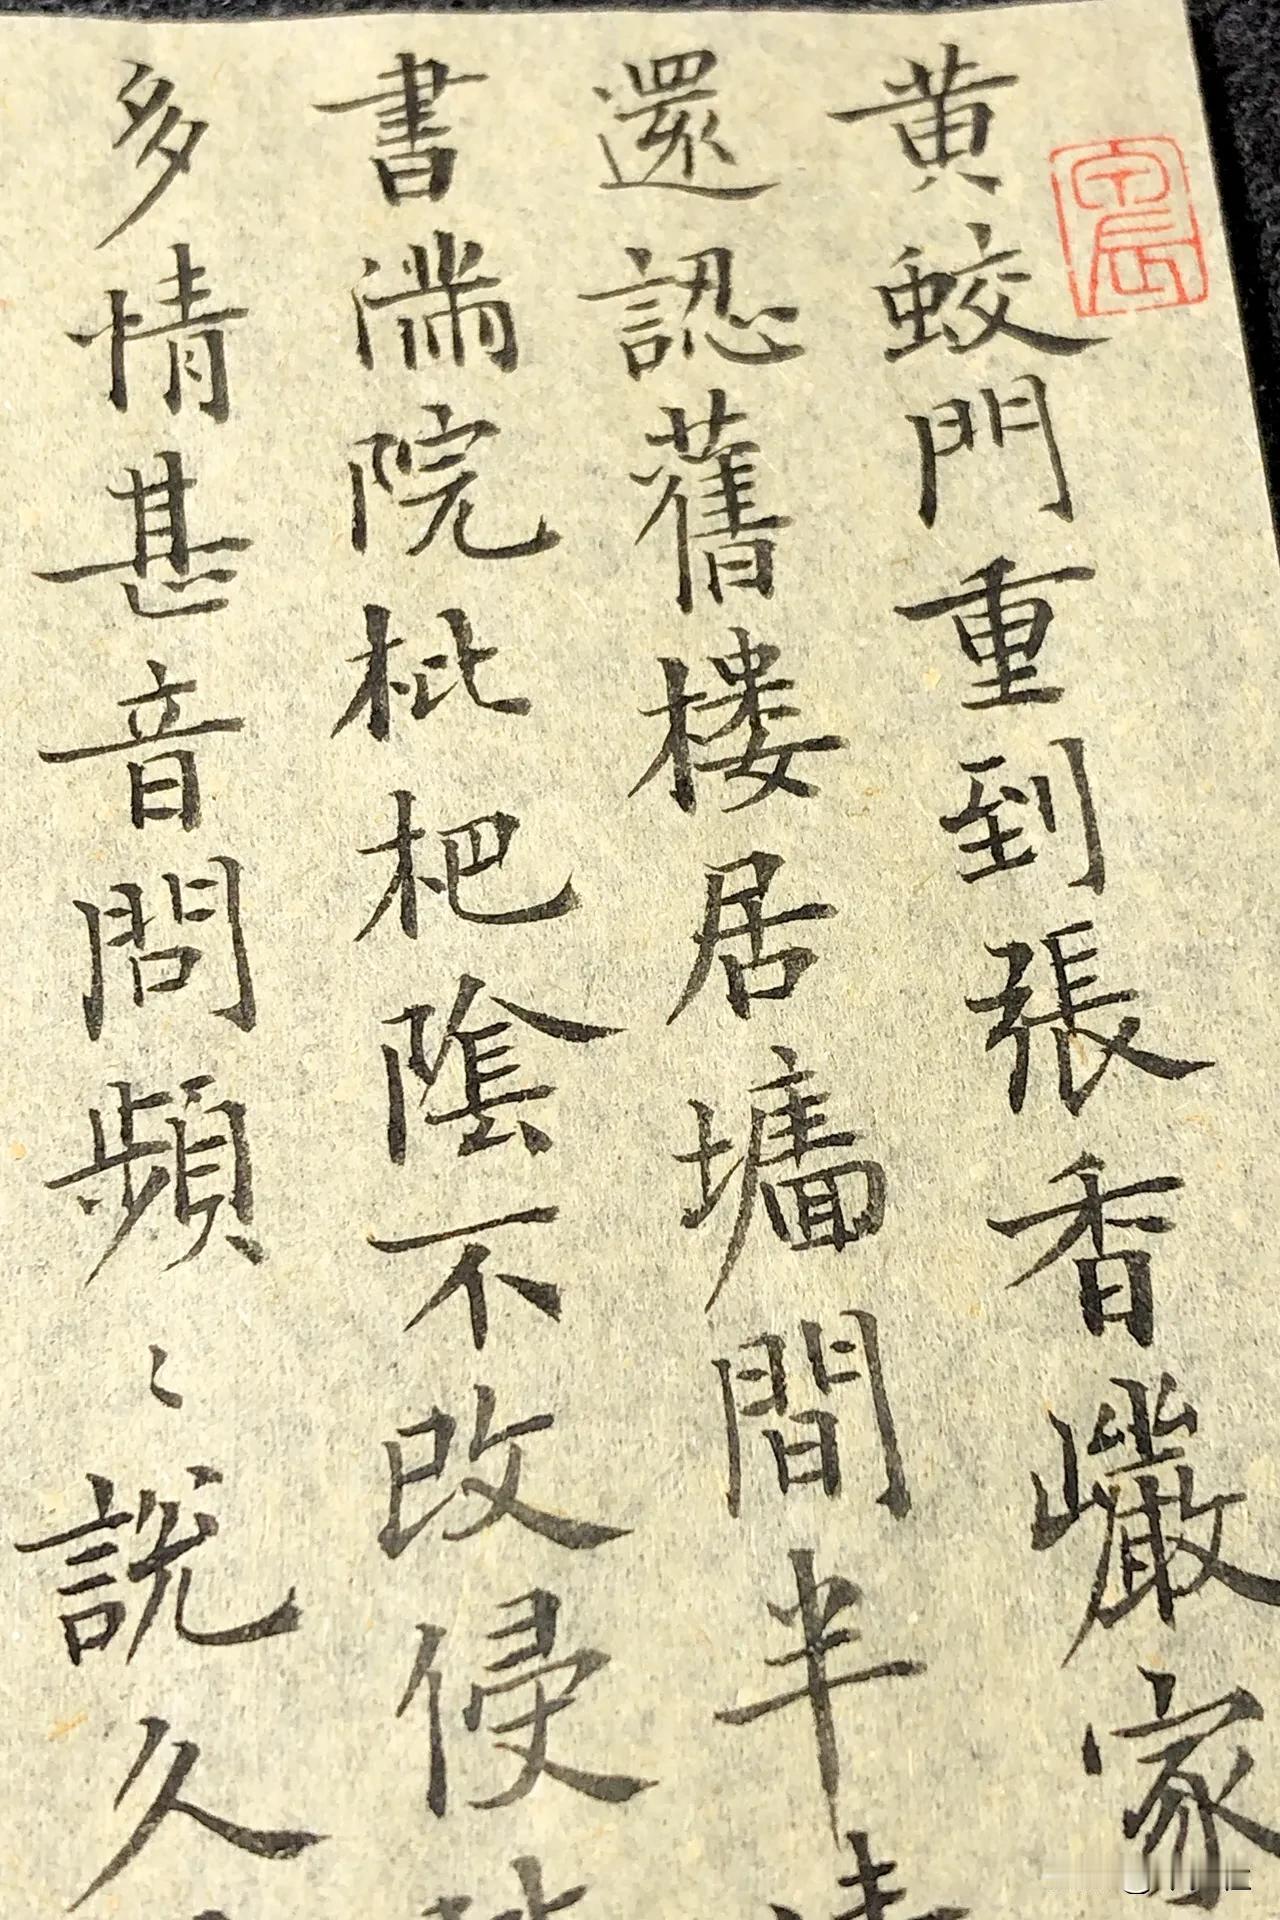 黄蛟門重到張香巖家
還認舊樓居墻間半
書滿院枇杷陰不改侵
多情甚音問頻〻說久